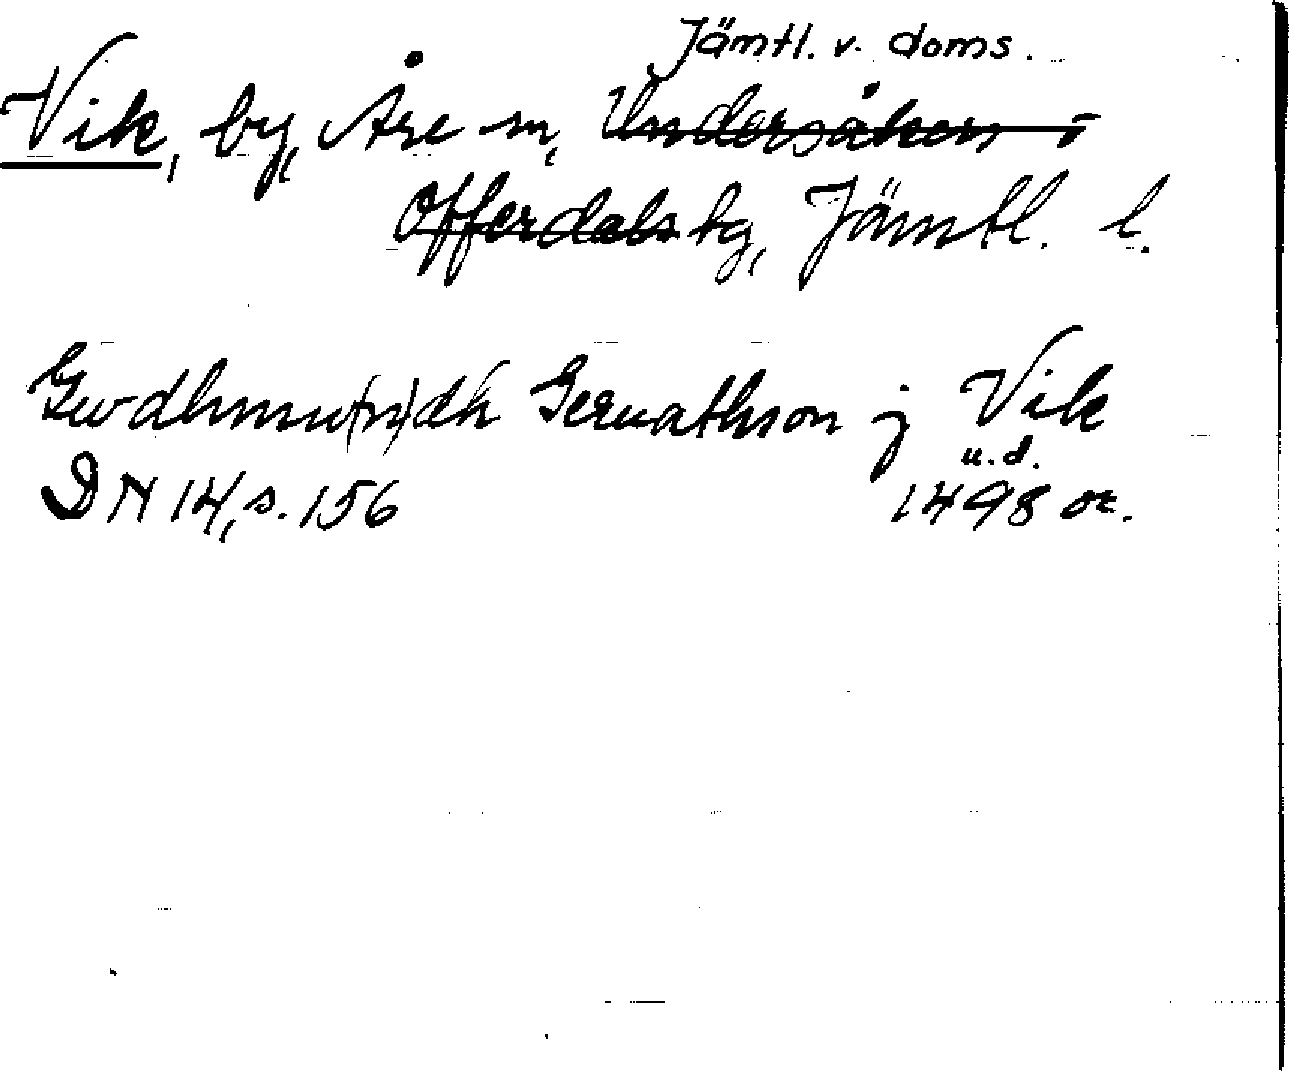 Jämtl. v. doms.
Vik, by, Åre sn, Undersåkers o
Offerdals tg, Jämtl. l.
Gwdhmu(n)dh Geruathson j Vik
u.d.
DN 14, s. 156 1498 or.